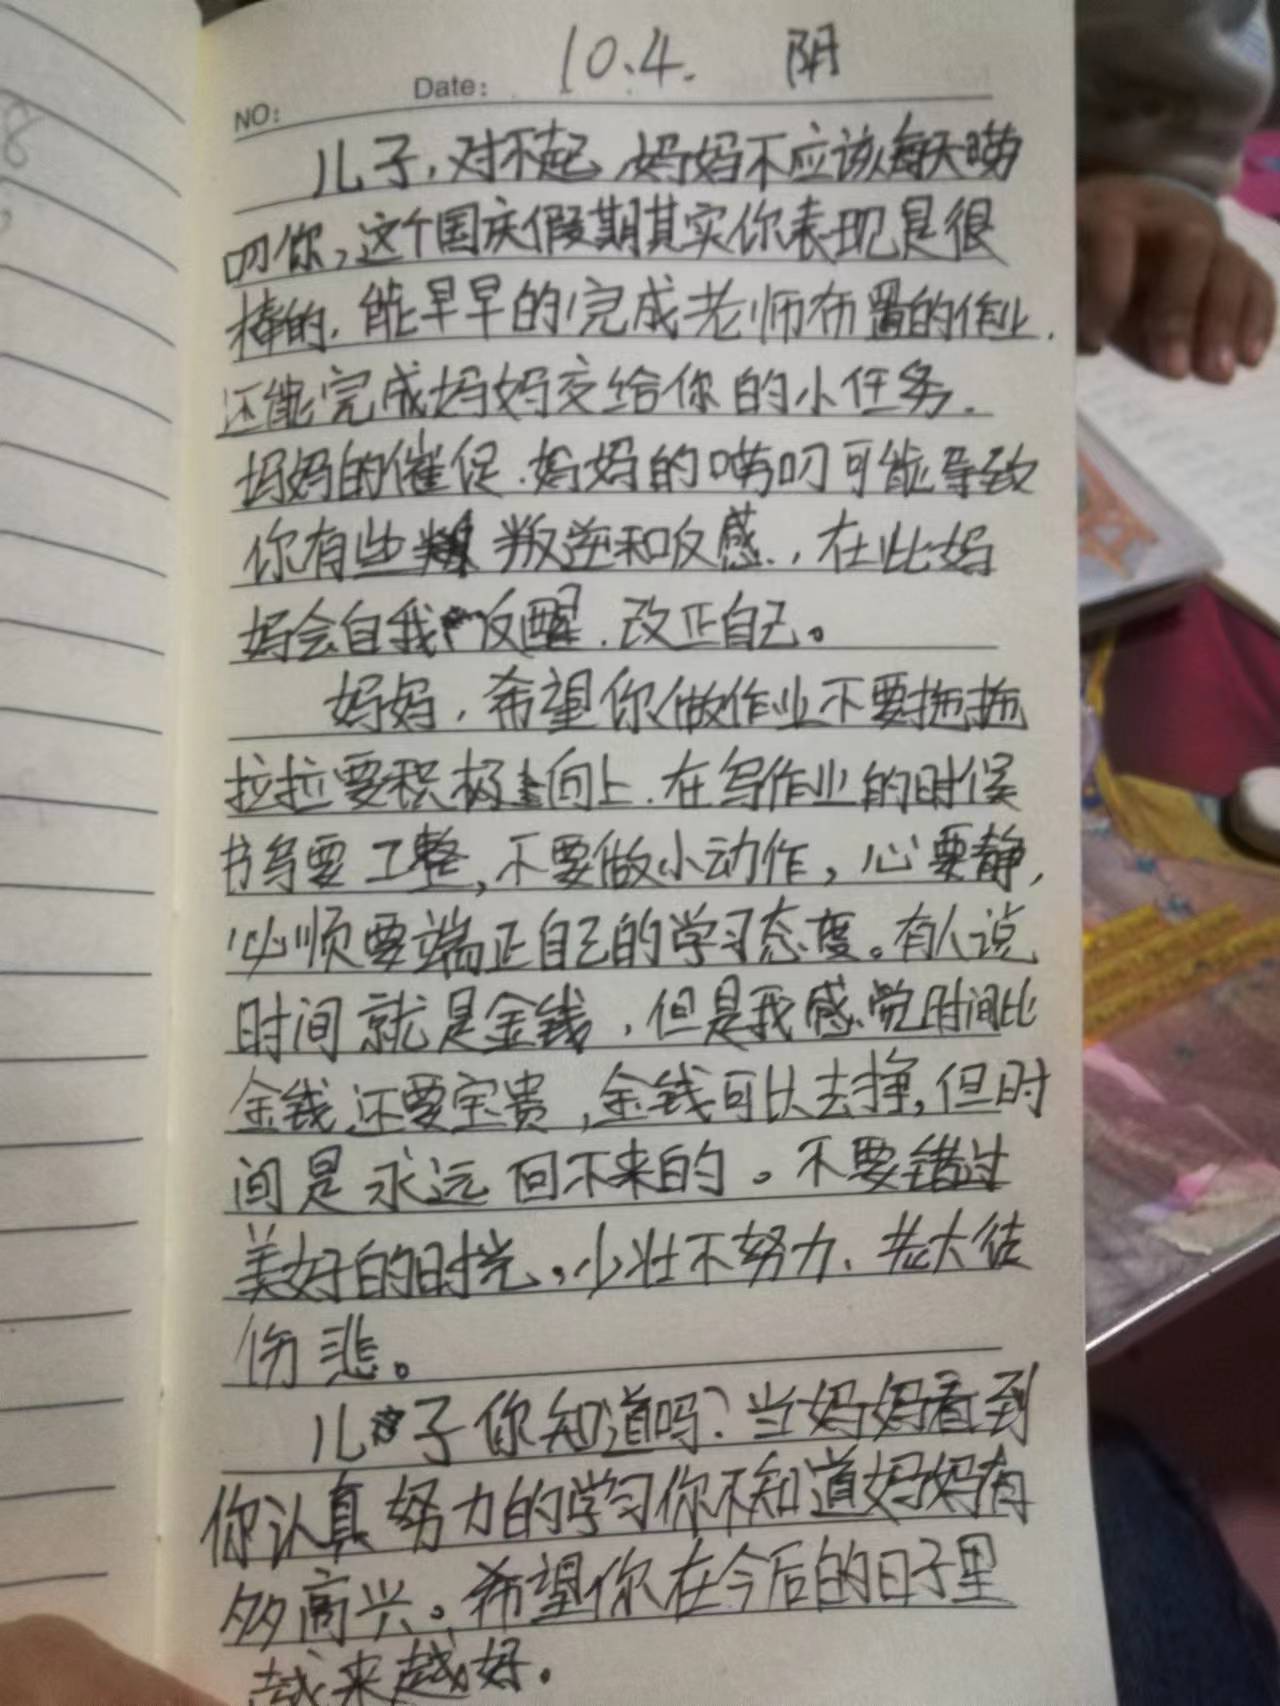 NO: Date: 10.4. 阴
儿子，对不起，妈妈不应该每天唠
叨你，这个国庆假期其实你表现是很
棒的，能早早的完成老师布置的作业，
还能完成妈妈交给你的小任务.
妈妈的催促.妈妈的唠叨可能导致
你有些叛逆和反感.，在此妈
妈会自我反醒.改正自己。
妈妈，希望你做作业不要拖拖
拉拉要积极向上.在写作业的时候
书写要工整，不要做小动作，心要静，
必须要端正自己的学习态度。有人说
时间就是金钱，但是我感觉时间比
金钱还要宝贵，金钱可以去挣，但时
间是永远回不来的。不要错过
美好的时光。少壮不努力、老大徒
伤悲。
儿子你知道吗？当妈妈看到
你认真努力的学习你不知道妈妈有
多高兴。希望你在今后的日子里
越来越好.
8